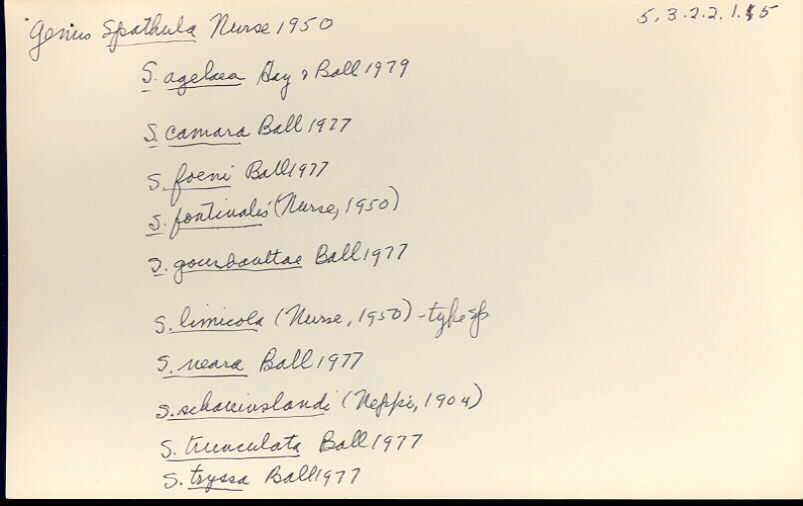 Genus Spathula Nurse 1950 5.3.2.2.1.15
S. agelaea Hay & Ball 1979
S. camara Ball 1977
S. foeni Ball 1977
S. fontinalis (Nurse, 1950)
S. gourbaultae Ball 1977
S. limicola (Nurse, 1950) - type sp
S. neara Ball 1977
S. schauinslandi (Neppi, 1904)
S. truculata Ball 1977
S. tryssa Ball 1977